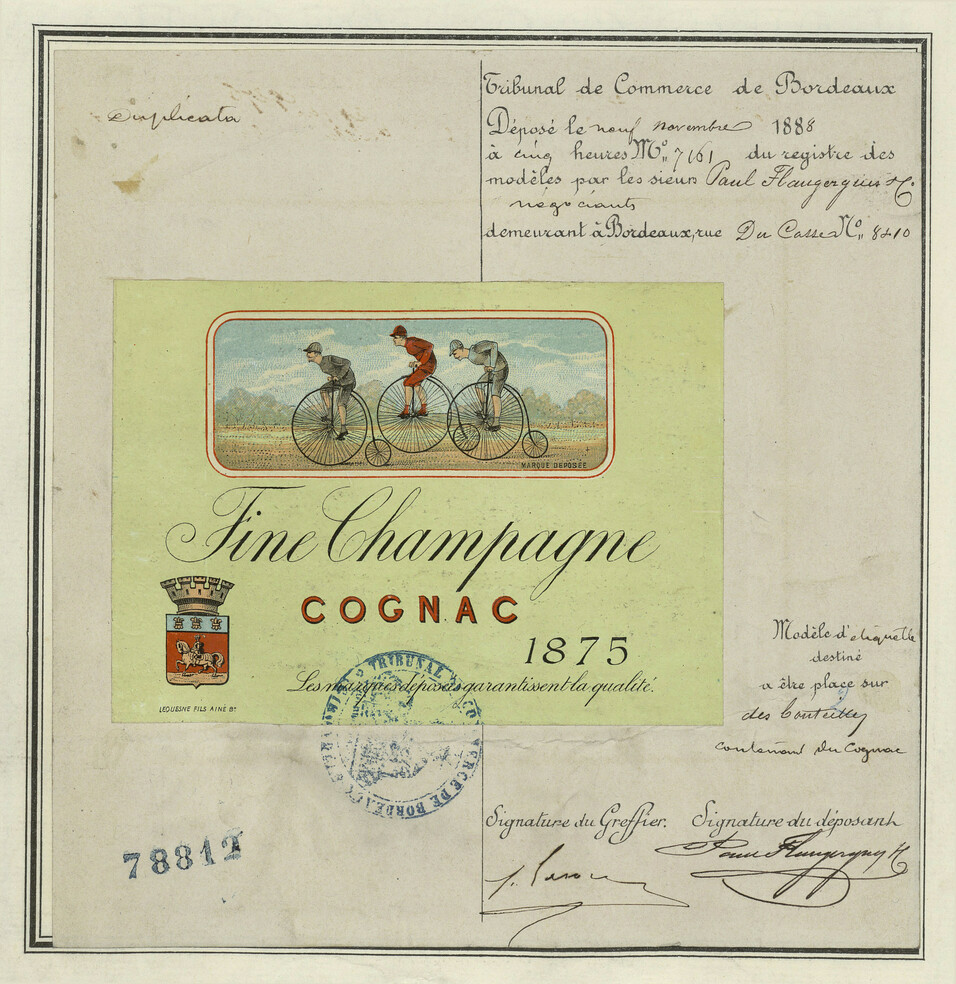 Duplicata
Tribunal de Commerce de Bordeaux
Déposé le neuf novembre 1888
à cinq heures No 7161 du registre des
modèles par les sieurs Paul Flaugergues & C.
négociants
demeurant à Bordeaux, rue Du Casse No 8
MARQUE DÉPOSÉE
Fine Champagne
COGNAC
1875
Les marques déposées garantissent la qualité.
LEQUESNE FILS AINÉ Bx
TRIBUNAL DE COMMERCE DE BORDEAUX
Modèle d'étiquette
destiné
a être place sur
des bouteilles
contenant du Cognac
Signature du Greffier. Signature du déposant
Paul Flaugergues
78812